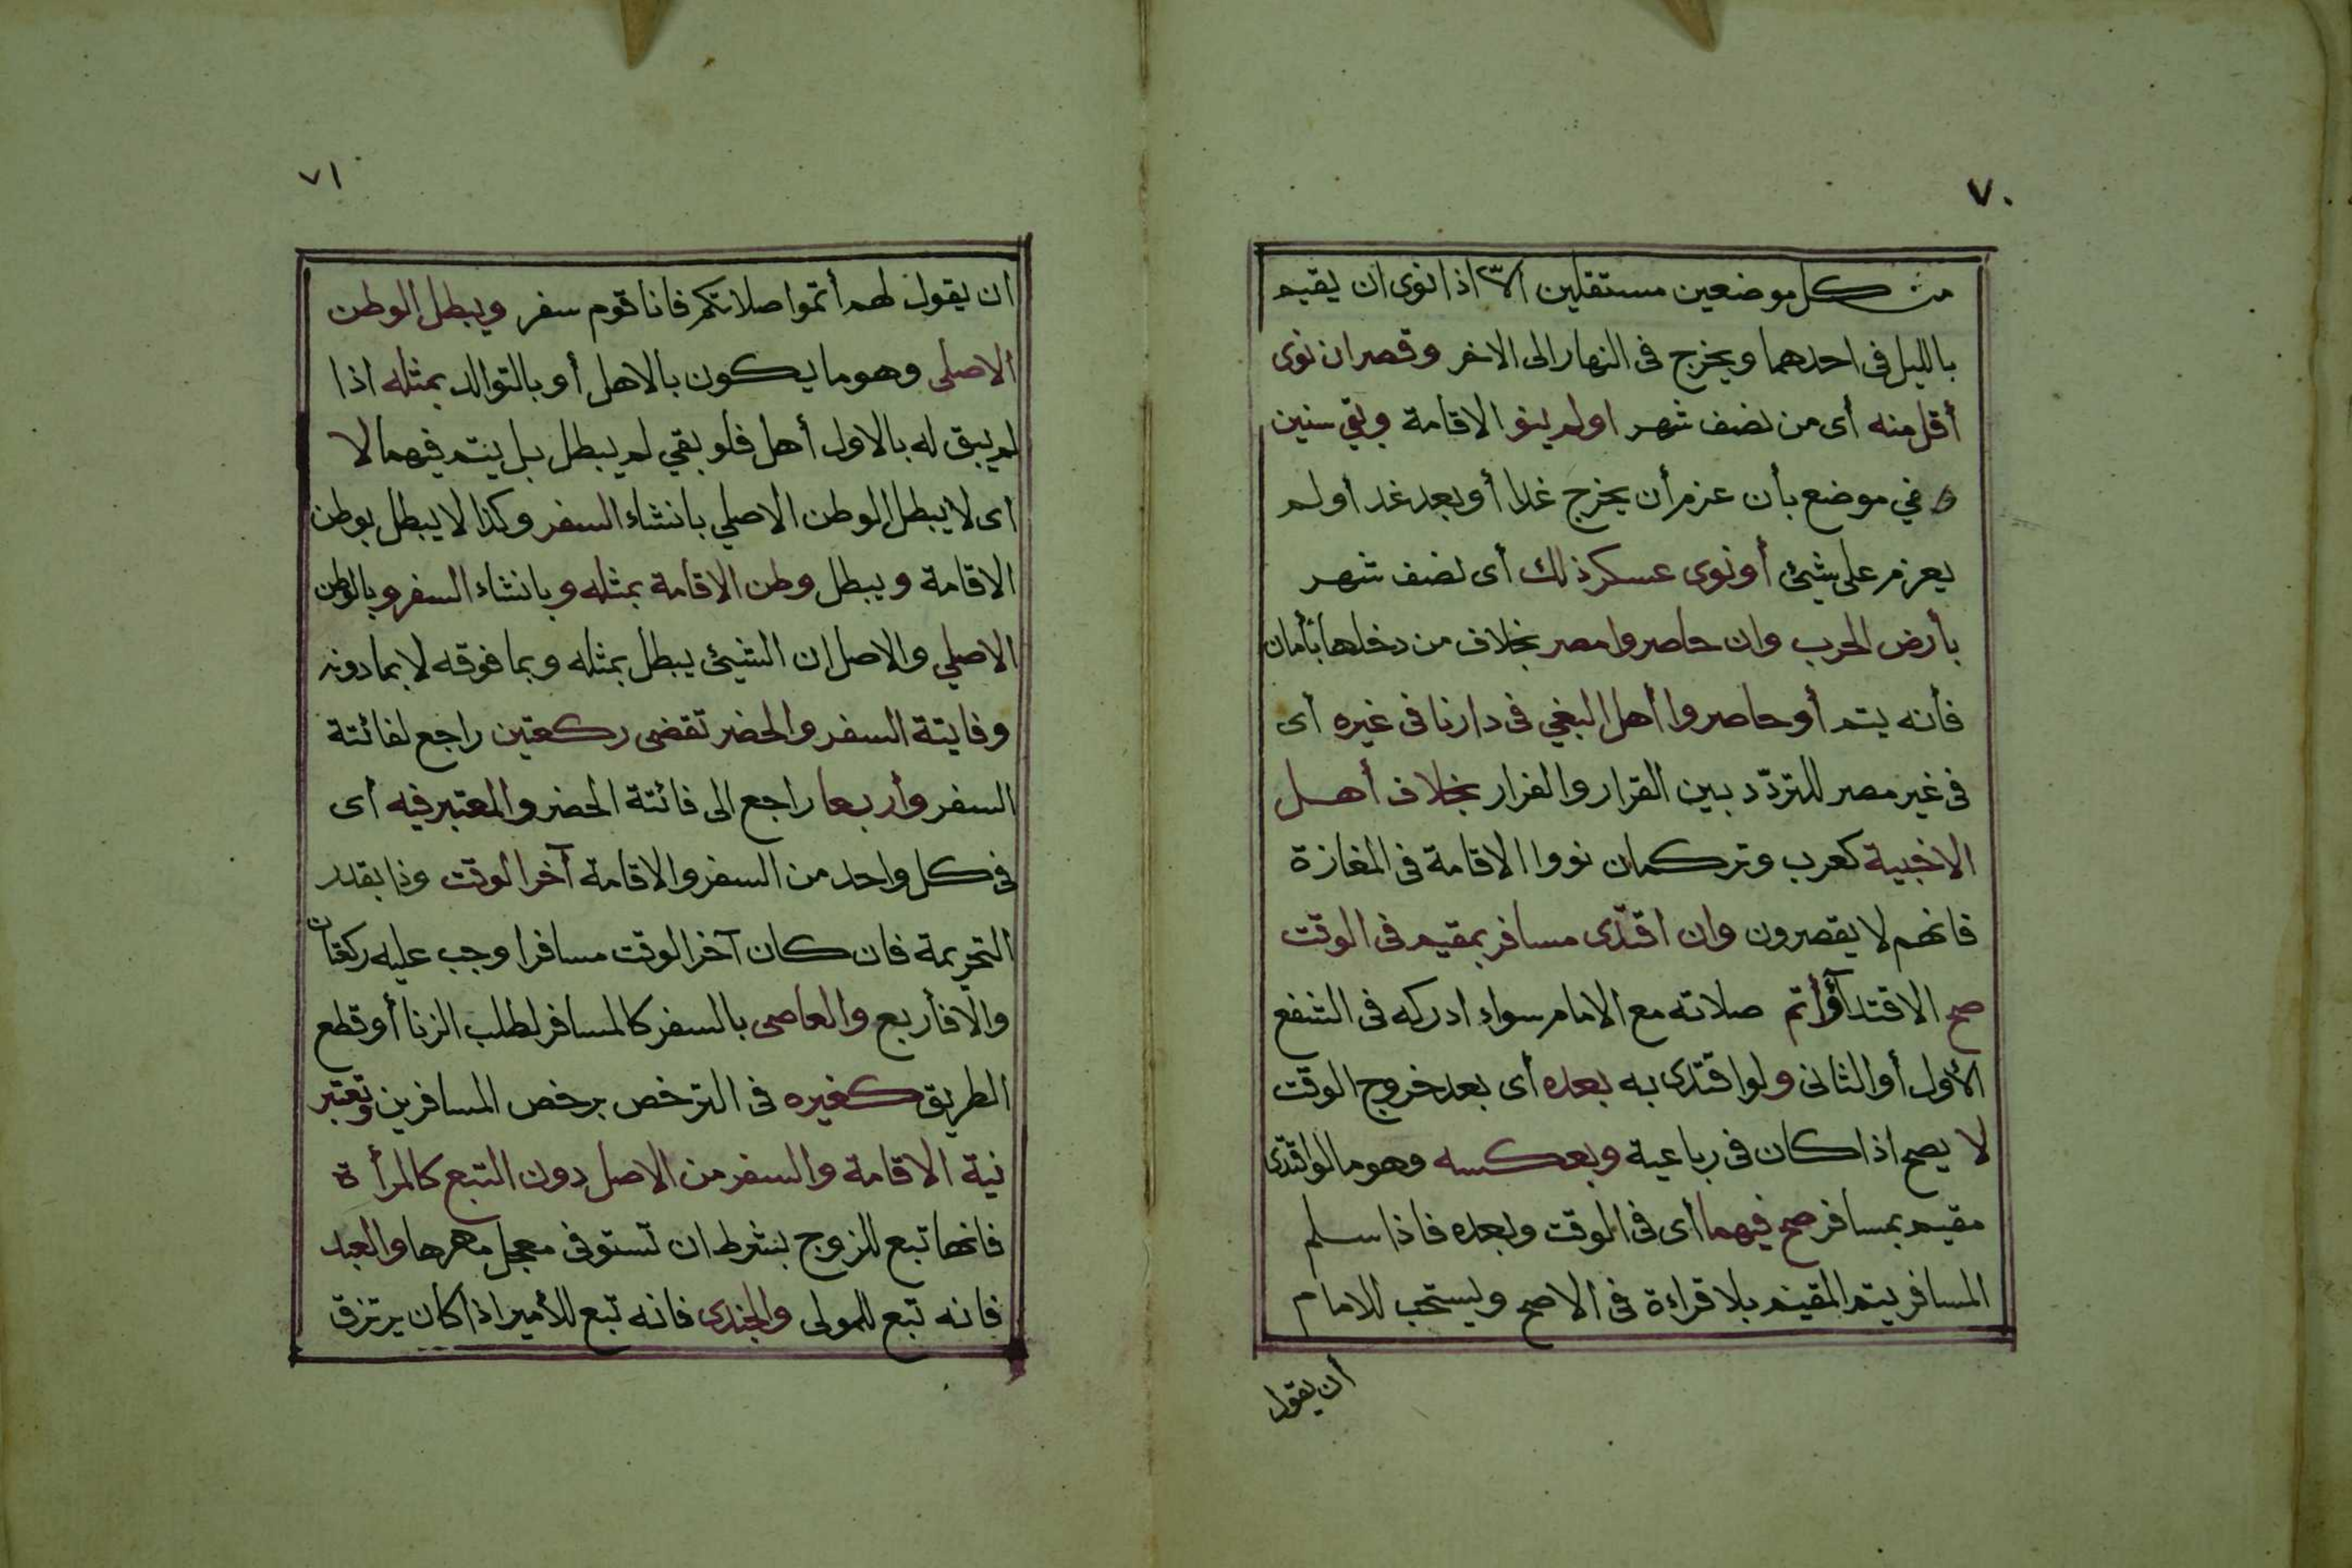 ٧٠
من كل موضعين مستقلين الا اذا نوى ان يقيم
بالليل في احدهما ويخرج في النهار الى الاخر وقصر ان نوى
أقل منه أى من نصف شهر اولم ينو الاقامة وبقي سنين
في موضع بأن عزم أن يخرج غدا أو بعد غد أو لم
يعزم على شيئ أو نوى عسكر ذلك أى نصف شهر
بأرض الحرب وان حاصروا مصر بخلاف من دخلها بأمان
فأنه يتم أو حاصروا أهل البغي في دارنا في غيره أى
في غير مصر للتردّد بين القرار والفرار بخلاف أهل
الاخبية كعرب وتركمان نووا الاقامة في المفازة
فانهم لا يقصرون وان اقتدى مسافر بمقيم في الوقت
صح الاقتدآء وأتم صلاته مع الامام سواء ادركه في الشفع
الأول أو الثانى ولو اقتدى به بعده أى بعد خروج الوقت
لا يصح اذا كان في رباعية وبعكسه وهو ما لو اقتدى
مقيم بمسافر صح فيهما أى في الوقت وبعده فاذا سلم
المسافر يتم المقيم بلا قراءة في الاصح ويستحب للامام
أن يقول
٧١
ان يقول لهم أتموا صلاتكم فانا قوم سفر ويبطل الوطن
الاصلى وهو ما يكون بالاهل أو بالتوالد بمثله اذا
لم يبق له بالاول أهل فلو بقي لم يبطل بل يتم فيهما لا
اى لا يبطل الوطن الاصلي بانشاء السفر وكذا لا يبطل بوطن
الاقامة ويبطل وطن الاقامة بمثله وبانشاء السفر وبالوطن
الاصلي والاصل ان الشيئ يبطل بمثله وبما فوقه لا بما دونه
وفايتة السفر والحضر تقضى ركعتين راجع لفائتة
السفر وأربعا راجع الى فائتة الحضر والمعتبر فيه أى
في كل واحد من السفر والاقامة آخر الوقت وذا بقدر
التحريمة فان كان آخر الوقت مسافرا وجب عليه ركعتان
والا فأربع والعاصى بالسفر كالمسافر لطلب الزنا أو قطع
الطريق كغيره في الترخص برخص المسافرين وتعتبر
نية الاقامة والسفر من الاصل دون التبع كالمرأة
فانها تبع للزوج بشرط ان تستوفى معجل مهرها والعبد
فانه تبع للمولى والجندى فانه تبع للأمير اذا كان يرتزق